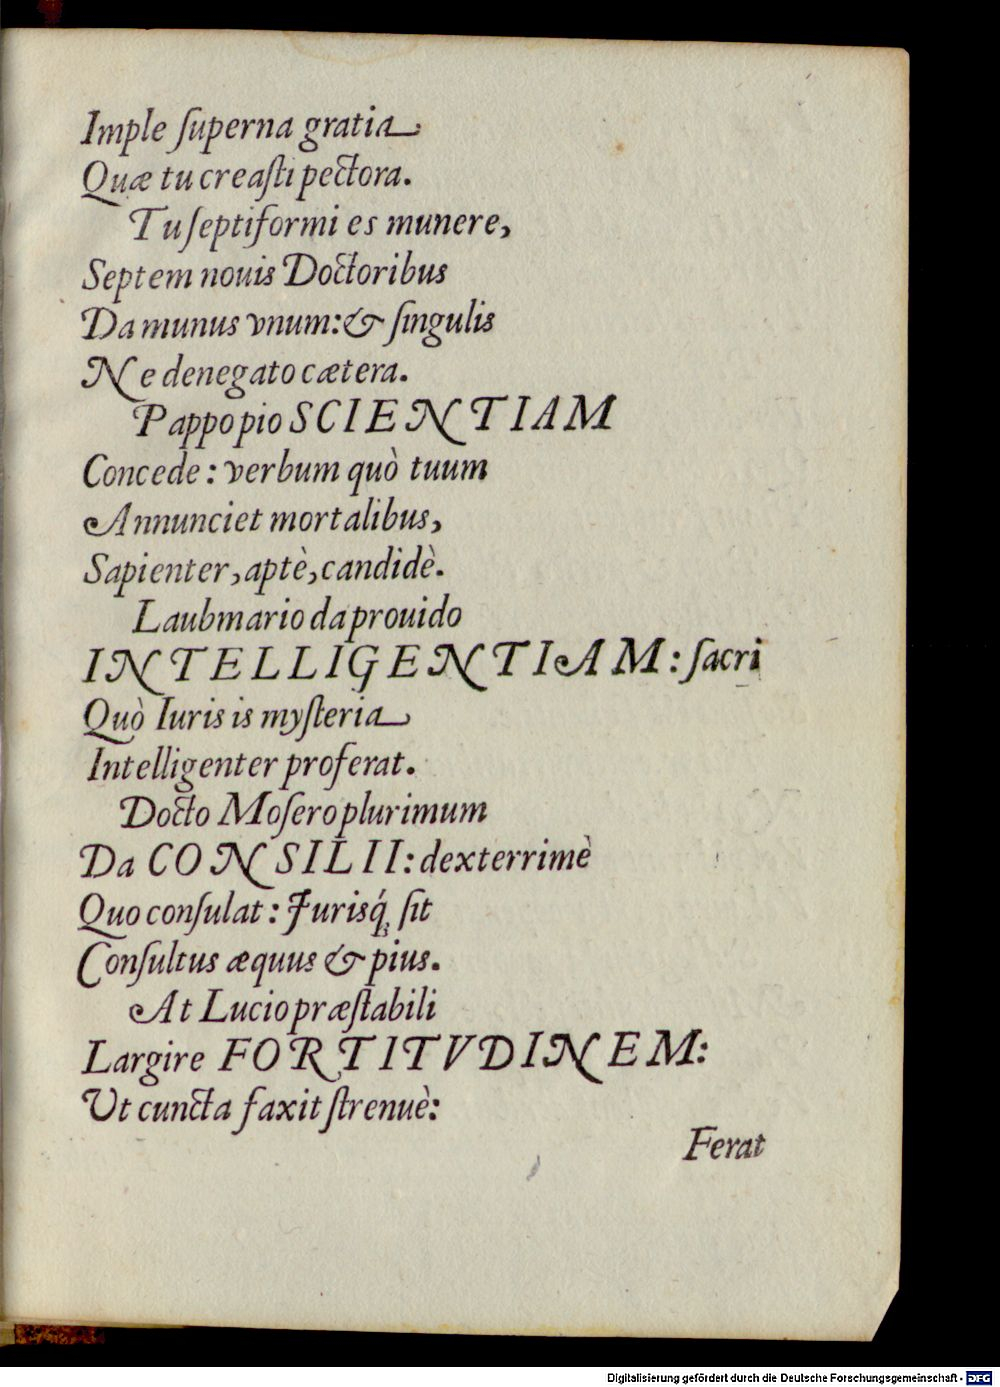 Imple ſuperna gratia
Quæ tu creaſti pectora.
Tu ſeptiformi es munere,
Septem nouis Doctoribus
Da munus vnum: & ſingulis
Ne denegato cætera.
Pappo pio SCIENTIAM
Concede: verbum quò tuum
Annunciet mortalibus,
Sapienter, aptè, candidè.
Laubmario da prouido
INTELLIGENTIAM: ſacri
Quò Iuris is myſteria
Intelligenter proferat.
Docto Moſero plurimum
Da CONSILII: dexterrimè
Quo conſulat: Jurisq́; ſit
Conſultus æquus & pius.
At Lucio præſtabili
Largire FORTITVDINEM:
Ut cuncta faxit ſtrenuè:
Ferat
Digitalisierung gefördert durch die Deutsche Forschungsgemeinschaft - DFG